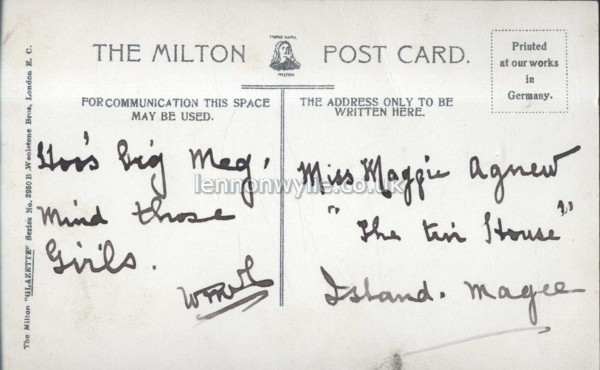 THE MILTON POST CARD.
TRADE MARK
MILTON
Printed
at our works
in
Germany.
FOR COMMUNICATION THIS SPACE
MAY BE USED.
THE ADDRESS ONLY TO BE
WRITTEN HERE.
Hoo's Big Meg.
Mind those
Girls.
Miss Maggie Agnew
"The tin House"
Island. Magee
lennonwylie.co.uk
The Milton "GLAZETTE" Series No. Woolstone Bros., London E. C.